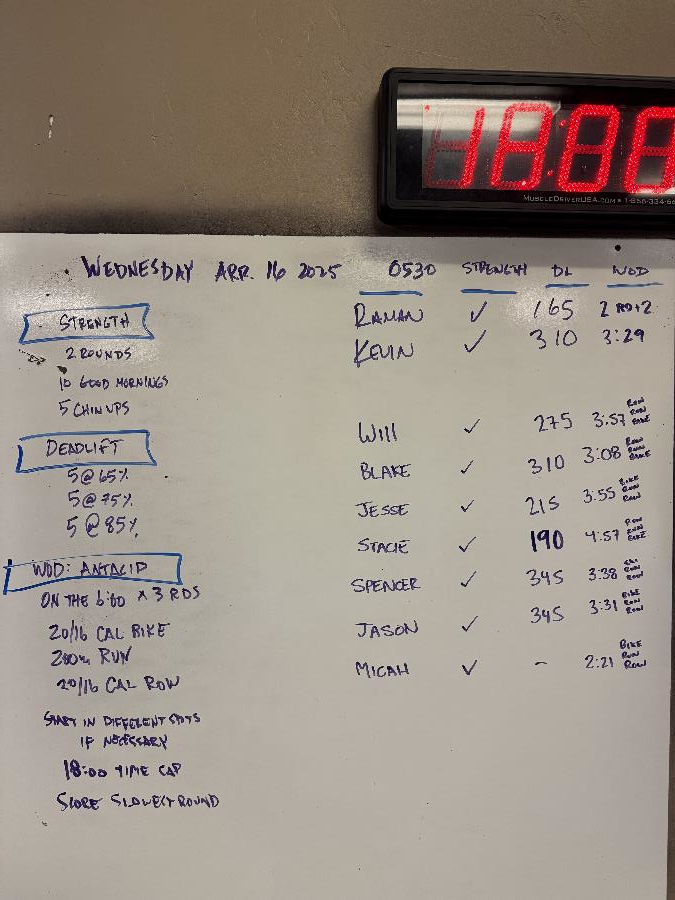 18:88
MUSCLEDRIVERUSA.COM • 1-866-334-66
WEDNESDAY APR. 16 2025 0530 STRENGTH DL WOD
STRENGTH
2 ROUNDS
10 GOOD MORNINGS
5 CHIN UPS
DEADLIFT
5@65%
5@75%
5@85%
WOD: ANTACID
ON THE 6:00 X 3 RDS
20/16 CAL BIKE
200m RUN
20/16 CAL ROW
START IN DIFFERENT SPOTS
IF NECESSARY
18:00 TIME CAP
SCORE SLOWEST ROUND
RAMAN ✓ 165 2 RD+2
KEVIN ✓ 310 3:29
WILL ✓ 275 3:57 ROW RUN BIKE
BLAKE ✓ 310 3:08 ROW RUN BIKE
JESSE ✓ 215 3:55 BIKE RUN ROW
STACIE ✓ 190 4:57 ROW RUN BIKE
SPENCER ✓ 345 3:38 SKI RUN ROW
JASON ✓ 345 3:31 BIKE RUN ROW
MICAH ✓ - 2:21 BIKE RUN ROW